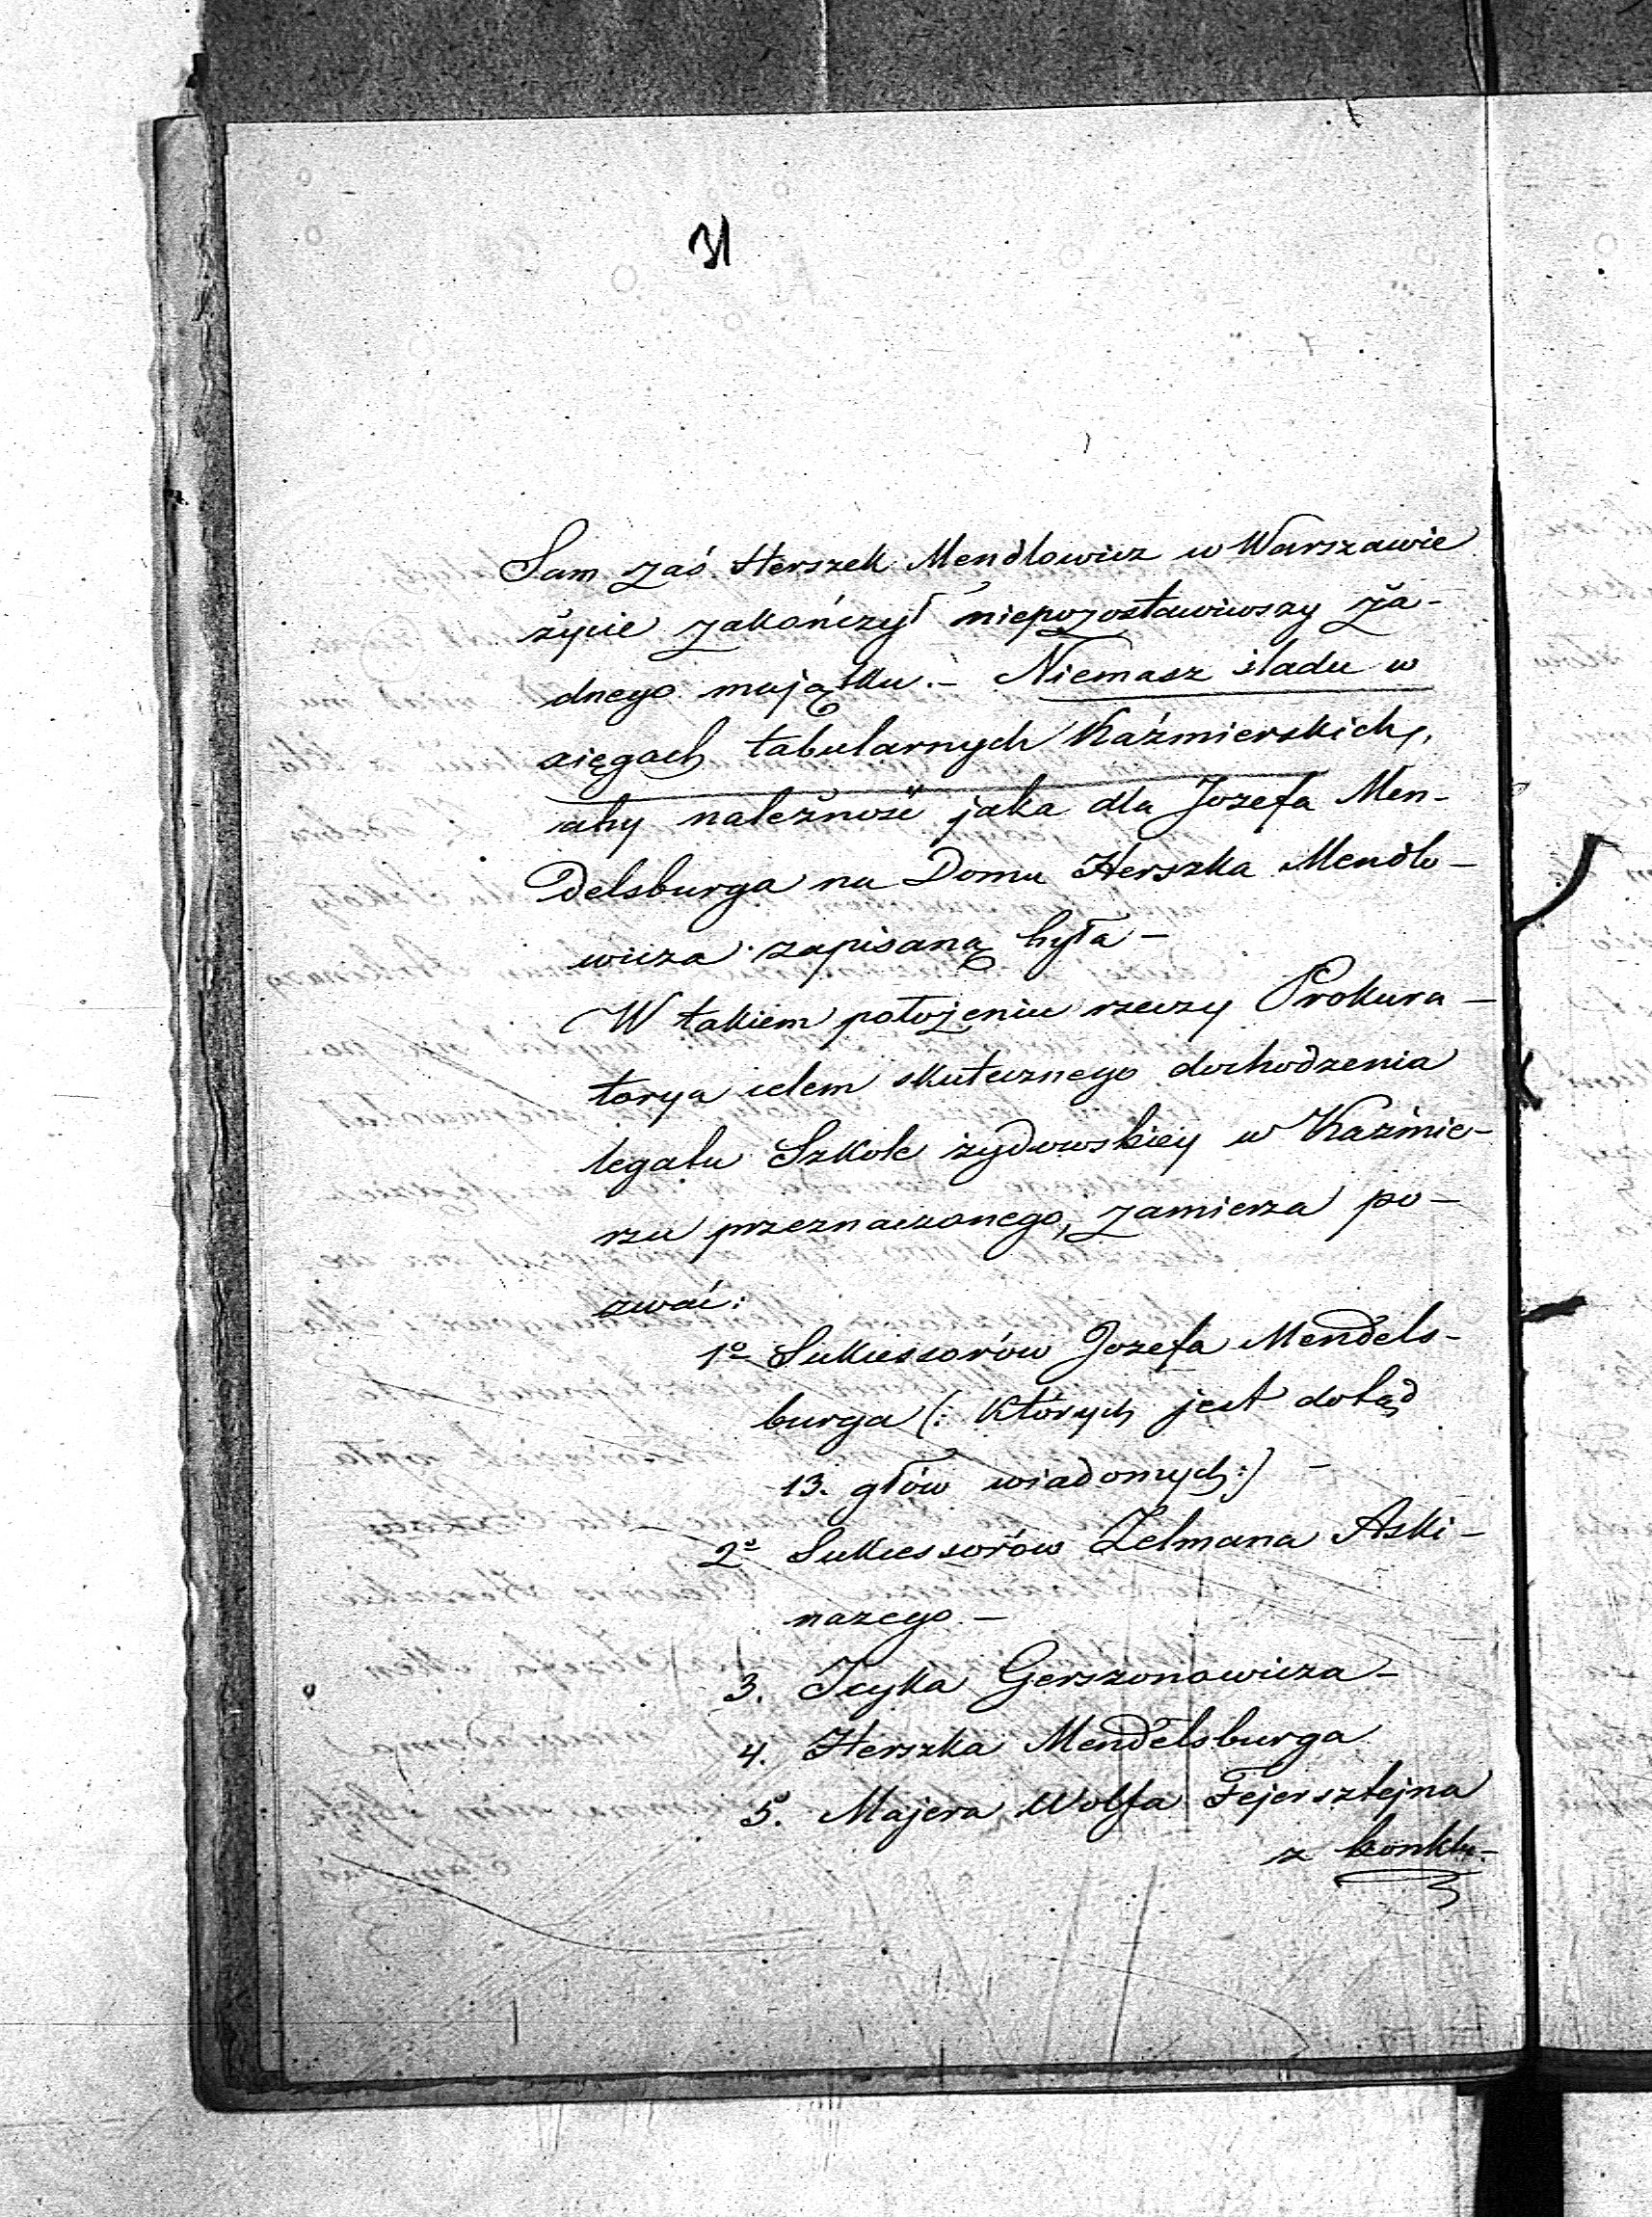 31
Sam zaś Herszek Mendlowicz w Warszawie
życie zakończył niepozostawiwszy ża-
dnego majątku. – Niemasz śladu w
xięgach tabularnych Kaźmierskich,
aby należność jaka dla Jozefa Men-
delsburga na Domu Herszka Mendlo-
wicza zapisaną była –
W takiem położeniu rzeczy Prokura-
torya celem skutecznego dochodzenia
legatu Szkole żydowskiey w Kaźmie-
rzu przeznaczonego, zamierza po-
zwać:
1o Sukcessorów Jozefa Mendels-
burga (: których jest dotąd
13. głów wiadomych :) –
2o Sukcessorów Zelmana Aski-
nazego –
3. Icyka Gerszonowicza –
4. Herszka Mendelsburga
5. Majera Wolfa Fejersztejna
z konklu-